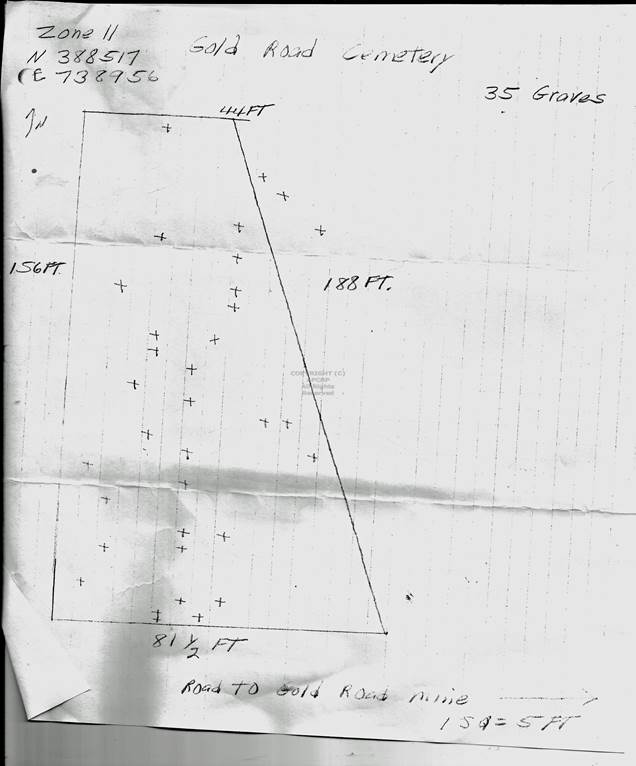 Zone 11
N 388517
E 738956
Gold Road Cemetery
35 Graves
N
44 FT
156 FT.
188 FT.
COPYRIGHT (C)
APCRP
All Rights
Reserved
81 1/2 FT
Road To Gold Road mine
1 SQ = 5 FT